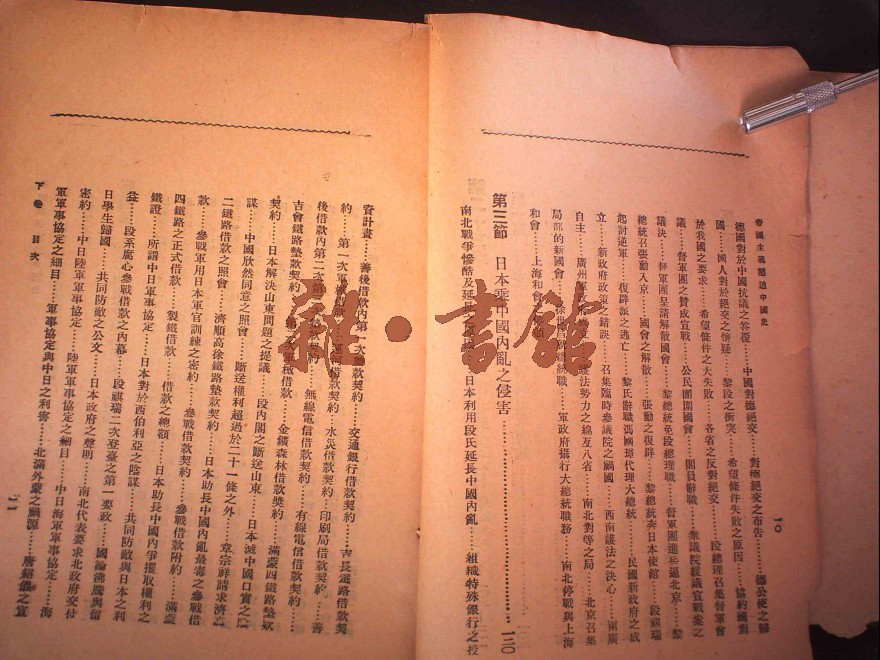 帝國主義壓迫中國史
一〇
德國對於中國抗議之答覆……中國對德絕交……對德絕交之布告……德公使之歸
國……國人對於絕交之懷疑……黎段之衝突……希望條件失敗之原因……協約國對
於我國之要求……希望條件之大失敗……各省之反對絕交……段總理召集督軍會
議……督軍團之贊成宣戰……公民團圍國會……閣員辭職……衆議院緩議宣戰案之
議決……督軍團呈請解散國會……黎總統免段總理職……督軍團進兵逼北京……黎
總統召張勳入京……國會之解散……張勳之復辟……黎總統奔日本使館……段祺瑞
起討逆軍……復辟派之逃亡……黎氏辭職馮國璋代理大總統……民國新政府之成
立……新政府政策之錯誤……召集臨時參議院之禍國……西南護法之決心……兩廣
自主……廣州軍政府……護法勢力之綿互八省……南北對等之局……北京召集
局部的新國會……徐世昌就總統職……軍政府攝行大總統職務……南北停戰與上海
和會……上海和會
第三節 日本乘中國內亂之侵害……一二〇
南北戰爭慘酷及延長之原因……日本利用段氏延長中國內亂……組織特殊銀行之投
資計畫……善後借款內第一次墊款契約……交通銀行借款契約……吉長鐵路借款契
約……第一次軍械借款……運河借款契約……水災借款契約……印刷局借款契約……善
後借款內第二次第三次墊款契約……無線電信借款契約……有線電信借款契約……
吉會鐵路墊款契約……第二次軍械借款……金鑛森林借款契約……滿蒙四鐵路墊款
契約……日本解決山東問題之提議……段內閣之斷送山東……日本滅中國口實之陰
謀……中國欣然同意之照會……斷送權利超過於二十一條之外……章宗祥請求濟高
二鐵路借款之照會……濟順高徐鐵路墊款契約……日本助長中國內亂最毒之參戰借
款……參戰軍用日本軍官訓練之密約……參戰借款契約……參戰借款附約……滿蒙
四鐵路之正式借款……製鐵借款……借款之總額……日本助長中國內爭攫取權利之
鐵證……所謂中日軍事協定……日本對於西伯利亞之陰謀……共同防敵與日本之利
益……段系腐心參戰借款之內幕……段祺瑞二次登臺之第一要政……國論沸騰與留
日學生歸國……共同防敵之公文……日本政府之聲明……南北代表要求北政府交付
密約……中日陸軍軍事協定……陸軍軍事協定之細目……中日海軍軍事協定……海
軍軍事協定之細目……軍事協定與中日之利害……北滿外蒙之禍源……唐紹儀之宣
下卷 目次
一一